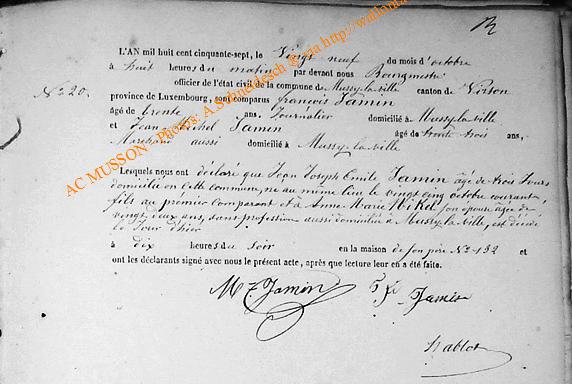 L'AN mil huit cent cinquante-sept, le Vingt neuf du mois d'octobre
à huit heures du matin par devant nous Bourgmestre
officier de l'état civil de la commune de Mussy-la-ville canton de Virton
N° 20. province de Luxembourg, sont comparus françois Jamin
âgé de trente ans, Journalier domicilié à Mussy-la-ville
et Jean Michel Jamin âgé de trente trois ans,
Marchand aussi domicilié à Mussy-la-ville
Lesquels nous ont déclaré que Jean Joseph Emile Jamin âgé de trois Jours
domicilié en Cette Commune, né au même lieu le vingt cinq octobre courant,
fils au premier Comparant et à Anne Marie son épouse âgée de
vingt deux ans, sans profession aussi domiciliée à Mussy-la-ville, est décédé
le Jour d'hier
à dix heures du soir en la maison de son père N° 132 et
ont les déclarants signé avec nous le présent acte, après que lecture leur en a été faite.
Jamin Jamin
AC MUSSON - Photos: A.Schneidesch @ via http://